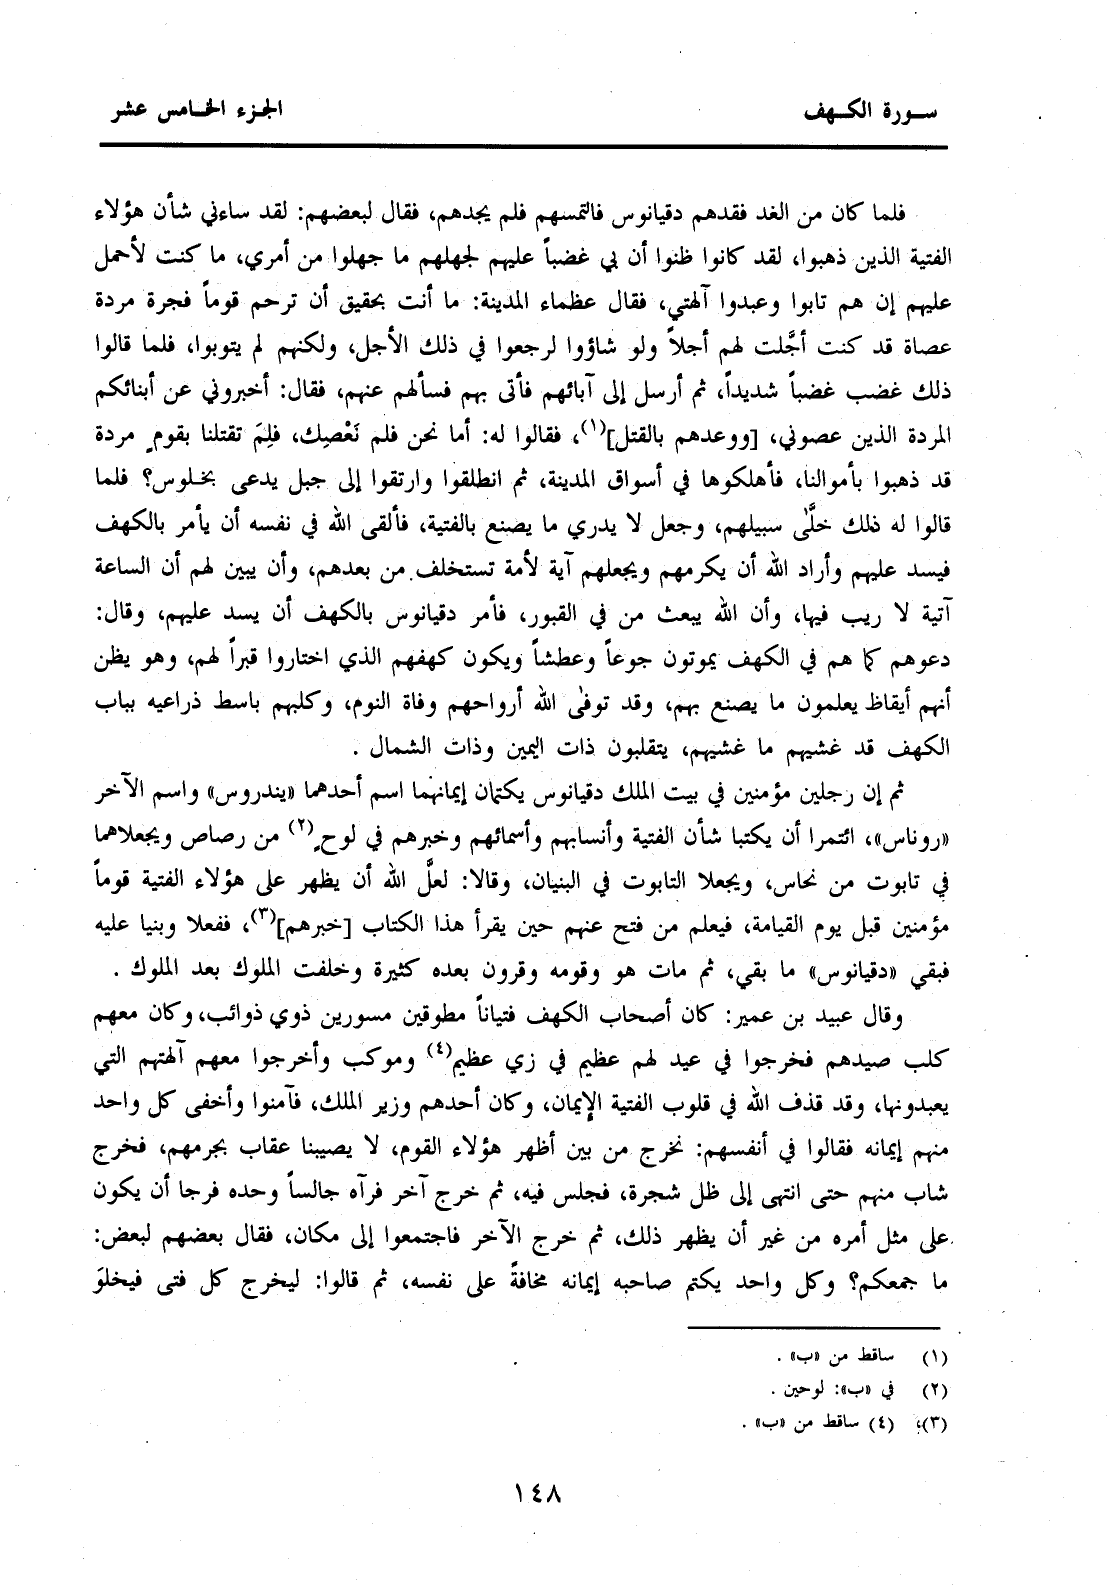 سورة الكهف
الجزء الخامس عشر
فلما كان من الغد فقدهم دقيانوس فالتمسهم فلم يجدهم، فقال لبعضهم: لقد ساءني شأن هؤلاء
الفتية الذين ذهبوا، لقد كانوا ظنوا أن بي غضباً عليهم لجهلهم ما جهلوا من أمري، ما كنت لأحمل
عليهم إن هم تابوا وعبدوا آلهتي، فقال عظماء المدينة: ما أنت بحقيق أن ترحم قوماً فجرة مردة
عصاة قد كنت أجَّلت لهم أجلاً ولو شاؤوا لرجعوا في ذلك الأجل، ولكنهم لم يتوبوا، فلما قالوا
ذلك غضب غضباً شديداً، ثم أرسل إلى آبائهم فأتى بهم فسألهم عنهم، فقال: أخبروني عن أبنائكم
المردة الذين عصوني، [ووعدهم بالقتل](١)، فقالوا له: أما نحن فلم نَعْصِك، فلِمَ تقتلنا بقومٍ مردة
قد ذهبوا بأموالنا، فأهلكوها في أسواق المدينة، ثم انطلقوا وارتقوا إلى جبل يدعى بخلوس؟ فلما
قالوا له ذلك خلَّى سبيلهم، وجعل لا يدري ما يصنع بالفتية، فألقى الله في نفسه أن يأمر بالكهف
فيسد عليهم وأراد الله أن يكرمهم ويجعلهم آية لأمة تستخلف من بعدهم، وأن يبين لهم أن الساعة
آتية لا ريب فيها، وأن الله يبعث من في القبور، فأمر دقيانوس بالكهف أن يسد عليهم، وقال:
دعوهم كما هم في الكهف يموتون جوعاً وعطشاً ويكون كهفهم الذي اختاروا قبراً لهم، وهو يظن
أنهم أيقاظ يعلمون ما يصنع بهم، وقد توفى الله أرواحهم وفاة النوم، وكلبهم باسط ذراعيه بباب
الكهف قد غشيهم ما غشيهم، يتقلبون ذات اليمين وذات الشمال .
ثم إن رجلين مؤمنين في بيت الملك دقيانوس يكتمان إيمانهما اسم أحدهما «يندروس» واسم الآخر
«روناس»، ائتمرا أن يكتبا شأن الفتية وأنسابهم وأسمائهم وخبرهم في لوحٍ(٢) من رصاص ويجعلاهما
في تابوت من نحاس، ويجعلا التابوت في البنيان، وقالا: لعلَّ الله أن يظهر على هؤلاء الفتية قوماً
مؤمنين قبل يوم القيامة، فيعلم من فتح عنهم حين يقرأ هذا الكتاب [خبرهم](٣)، ففعلا وبنيا عليه
فبقي «دقيانوس» ما بقي، ثم مات هو وقومه وقرون بعده كثيرة وخلفت الملوك بعد الملوك .
وقال عبيد بن عمير: كان أصحاب الكهف فتياناً مطوقين مسورين ذوي ذوائب، وكان معهم
كلب صيدهم فخرجوا في عيد لهم عظيم في زي عظيم(٤) وموكب وأخرجوا معهم آلهتهم التي
يعبدونها، وقد قذف الله في قلوب الفتية الإيمان، وكان أحدهم وزير الملك، فآمنوا وأخفى كل واحد
منهم إيمانه فقالوا في أنفسهم: نخرج من بين أظهر هؤلاء القوم، لا يصيبنا عقاب بجرمهم، فخرج
شاب منهم حتى انتهى إلى ظل شجرة، فجلس فيه، ثم خرج آخر فرآه جالساً وحده فرجا أن يكون
على مثل أمره من غير أن يظهر ذلك، ثم خرج الآخر فاجتمعوا إلى مكان، فقال بعضهم لبعض:
ما جمعكم؟ وكل واحد يكتم صاحبه إيمانه مخافةً على نفسه، ثم قالوا: ليخرج كل فتى فيخلوَ
(١) ساقط من «ب» .
(٢) في «ب»: لوحين .
(٣)، (٤) ساقط من «ب» .
١٤٨